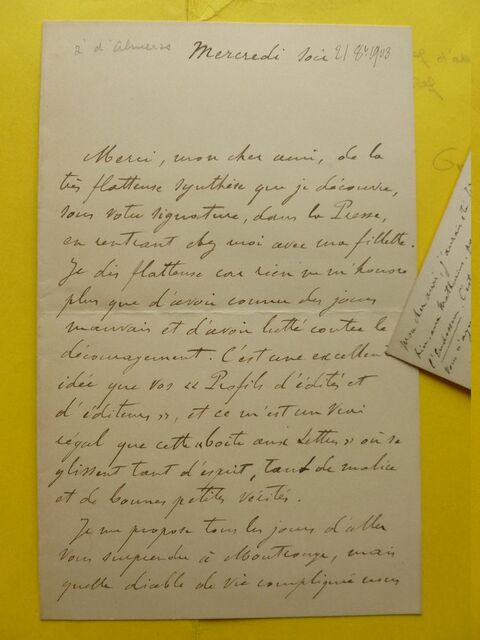 à d'Almeras
Mercredi soir 21 8bre 1908
Merci, mon cher ami, de la
très flatteuse synthèse que je découvre,
sous votre signature, dans la Presse,
en rentrant chez moi avec ma fillette.
Je dis flatteuse car rien ne m'honore
plus que d'avoir connu des jours
mauvais et d'avoir lutté contre le
découragement. C'est une excellente
idée que vos « Profils d'édités et
d'éditeurs », et ce m'est un vrai
régal que cette « boîte aux Lettres » où se
glissent tant d'esprit, tant de malice
et de bonnes petites vérités.
Je me propose tous les jours d'aller
vous surprendre à Montrouge, mais
quelle diable de vie compliquée nous
Mon cher ami, j'aurais été